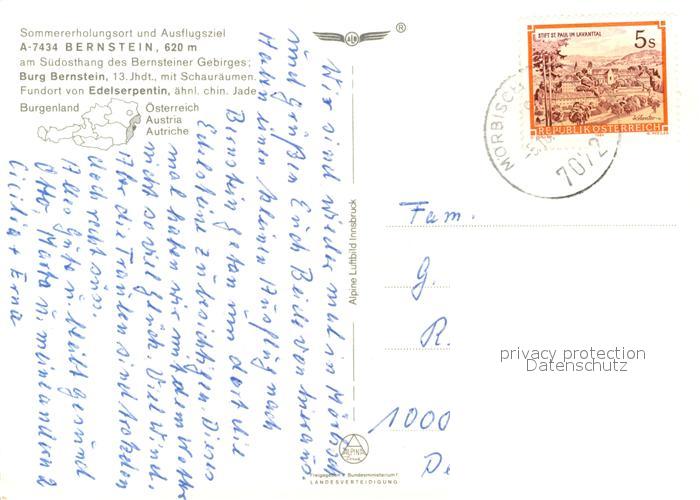 Sommererholungsort und Ausflugsziel
A-7434 BERNSTEIN, 620 m
am Südosthang des Bernsteiner Gebirges;
Burg Bernstein, 13. Jhdt., mit Schauräumen.
Fundort von Edelserpentin, ähnl. chin. Jade
Burgenland
Österreich
Austria
Autriche
ALN
®
STIFT ST. PAUL IM LAVANTTAL
5 S
REPUBLIK ÖSTERREICH
MÖRBISCH
7072
Wir sind wieder mal in Mörbisch
und grüßen Euch Beide von hier aus.
Haben einen kleinen Ausflug nach
Bernstein getan um dort die
Edelsteine zu besichtigen. Dieses
mal haben wir mit dem Wetter
nicht so viel Glück. Viel Wind.
Aber die Trauben sind trotzdem
Alles Gute u. bleibt gesund
Otto, Marta u.
+ Erna
Alpine Luftbild Innsbruck
Fam.
G.
R.
1000
privacy protection
Datenschutz
ALPINE
Freigegeben v. Bundesministerium f.
LANDESVERTEIDIGUNG